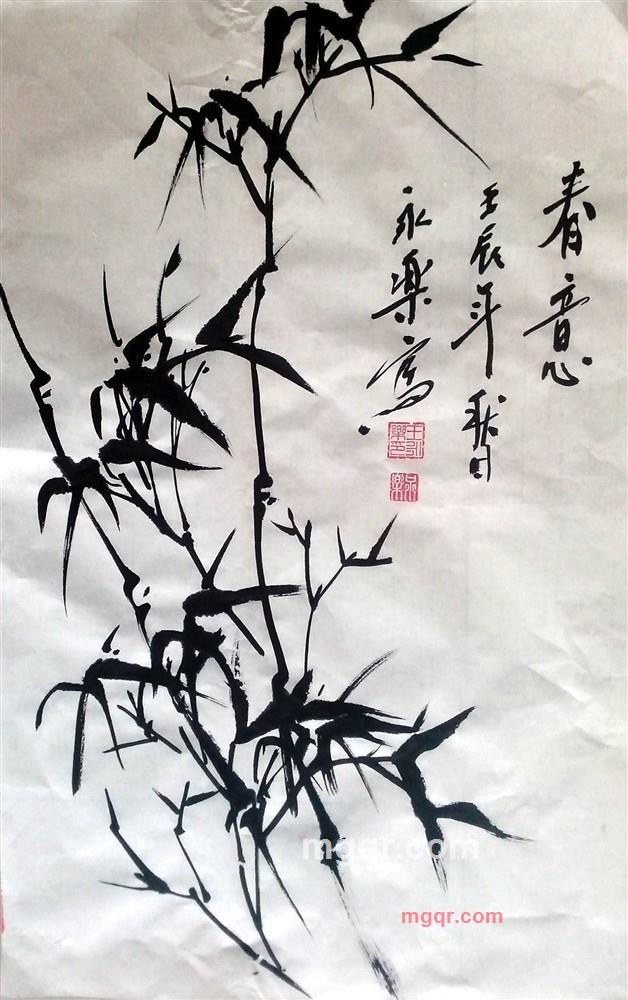 春意
壬辰年秋日
永樂寫
mgqr.com
mgqr.com